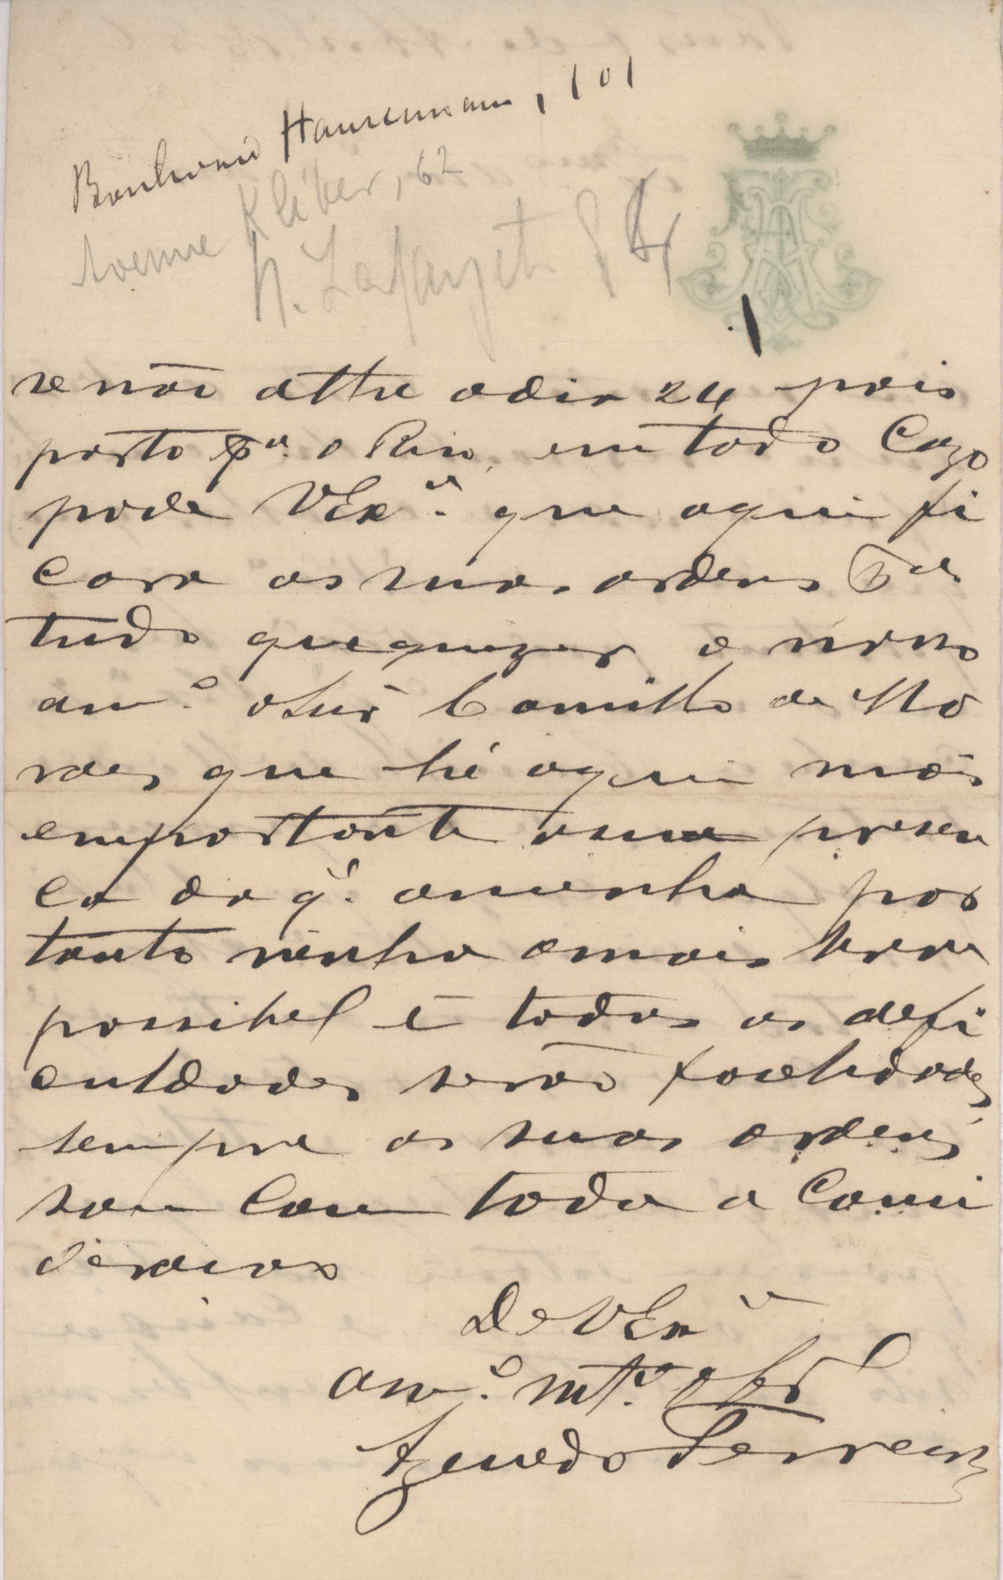 Boulevard Haussmann, 101
Avenue Kléber, 62
H. Lafayete 8
se não athe o dia 24 pois
parto pª o Rio, em todo Cazo
pode VExª que aqui fi
cara as suas ordens pª
tudo que quizer o nosso
amº o Snr Camillo de Mo
raes, que hé aqui mais
emportante a sua presen
ca do q' a minha por
tanto venha o mais breve
possibel e todas as defi
culdades serão facelidades
sempre as suas ordens
sou com toda a Consi
deracao
De VExª
amº mtº obrº
Azevedo Ferreira